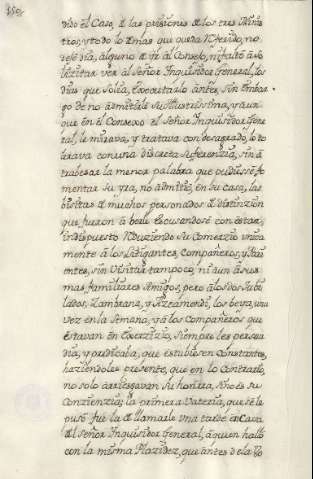 dido el Caso, de las prisiones de los tres Minis
tros, y todo lo demas que queda referido, no
dejó dia, alguno de ir al Consejo, ni faltó á so
licitar ver al Señor Inquisidor General, los
dias que solia, executarlo ántes, sin embar
go de no admitirle su Illustrissima, y aun
que en el Consexo el Señor Inquisidor Gene
ral, le mirava, y tratava con desagrado, lo to
lerava con una discreta suferenzia, sin á
trabesar la menor palabra que pudiesse fo
mentar su yra, no admitió, en su casa, las
visitas de muchos personados de distinzion
que fueron á berle escusandosé con estar,
indispuesto reduziendo su Comerzio unica
mente á los Litigantes, Compañeros, y
entes, sin visitar tampoco, ni aun á sus
mas familiares Amigos, pero á los dos Jubi
lados, Zambrana, y Arzeamendi, los beya, una
vez en la semana, y á los Compañeros que
estavan en Exerzizio, siempre les persua
dia, y predicaba, que estubiesen constantes,
haziendoles presente, que en lo Contrario,
no solo arriesgavan su honrra, sino es su
Conzienzia; la primera Vateria, que se le
puso fue la de llamarle una tarde en Casa
del Señor Inquisidor General, á quien halló
con la misma Plazidez, que ántes de la